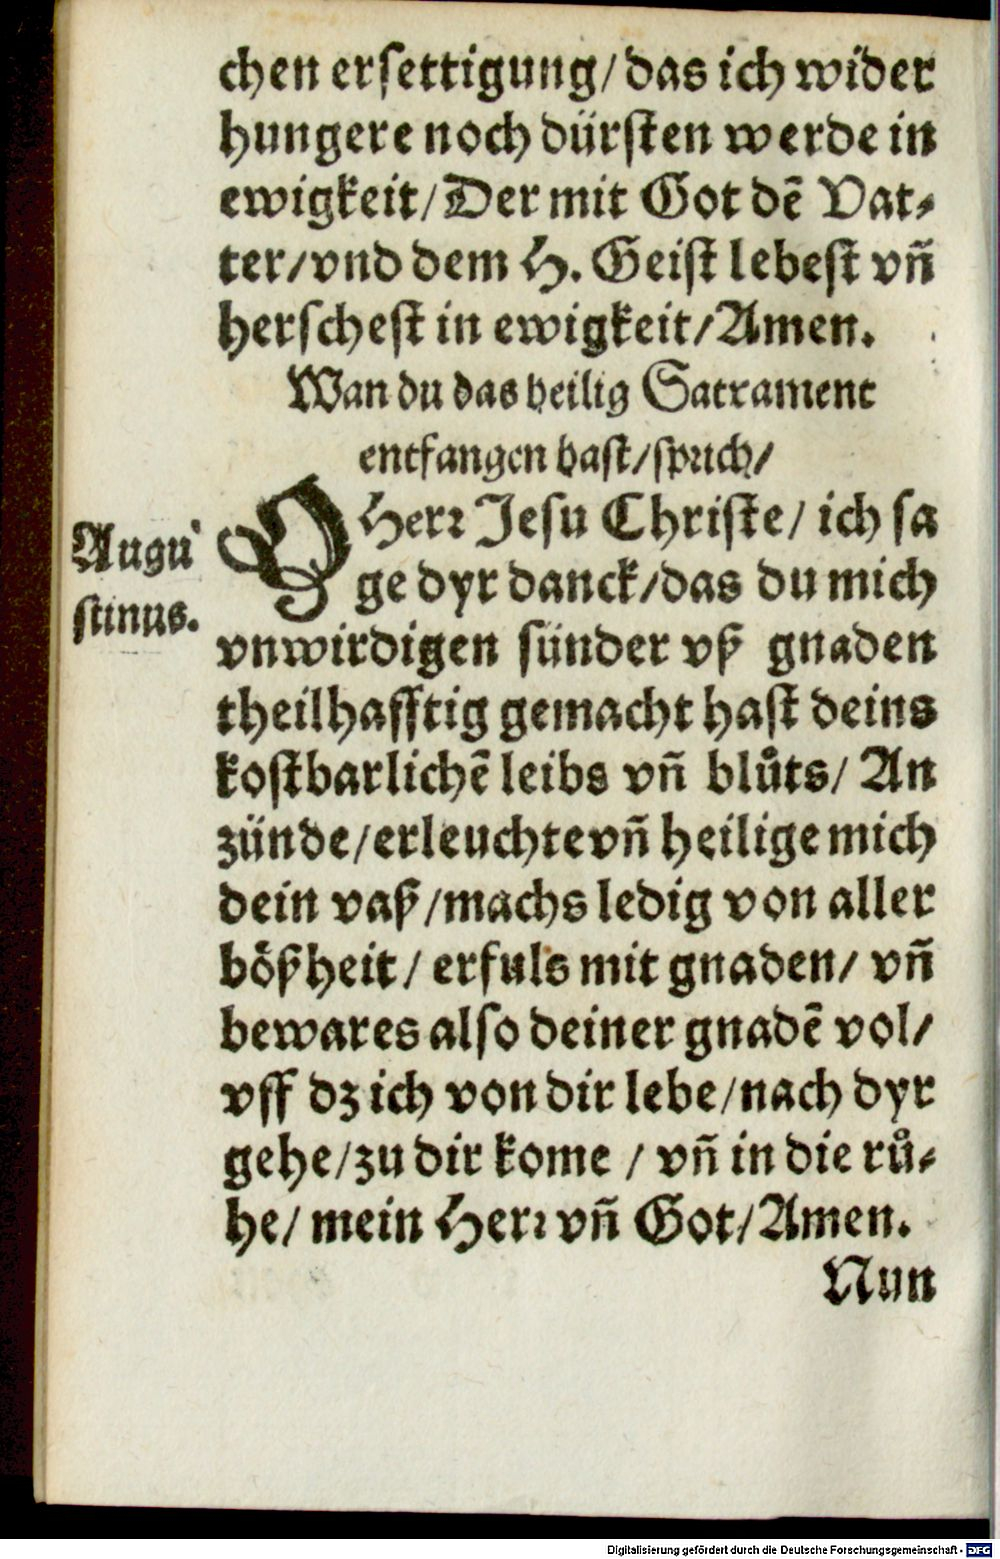 chen ersettigung/das ich wider
hungere noch dürsten werde in
ewigkeit/Der mit Got dē Vat⸗
ter/vnd dem H. Geist lebest vñ
herschest in ewigkeit/Amen.
Wan du das heilig Sacrament
entfangen hast/sprich/
Augu
stinus.
O Herr Jesu Christe/ ich sa
ge dyr danck/das du mich
vnwirdigen sünder vß gnaden
theilhafftig gemacht hast deins
kostbarlichē leibs vñ blůts/ An
zünde/erleuchte vñ heilige mich
dein vaß/machs ledig von aller
bößheit/ erfuls mit gnaden/ vñ
bewares also deiner gnadē vol/
vff dz ich von dir lebe/nach dyr
gehe/zu dir kome / vñ in die rů⸗
he/ mein Herr vñ Got/Amen.
Nun
Digitalisierung gefördert durch die Deutsche Forschungsgemeinschaft - DFG